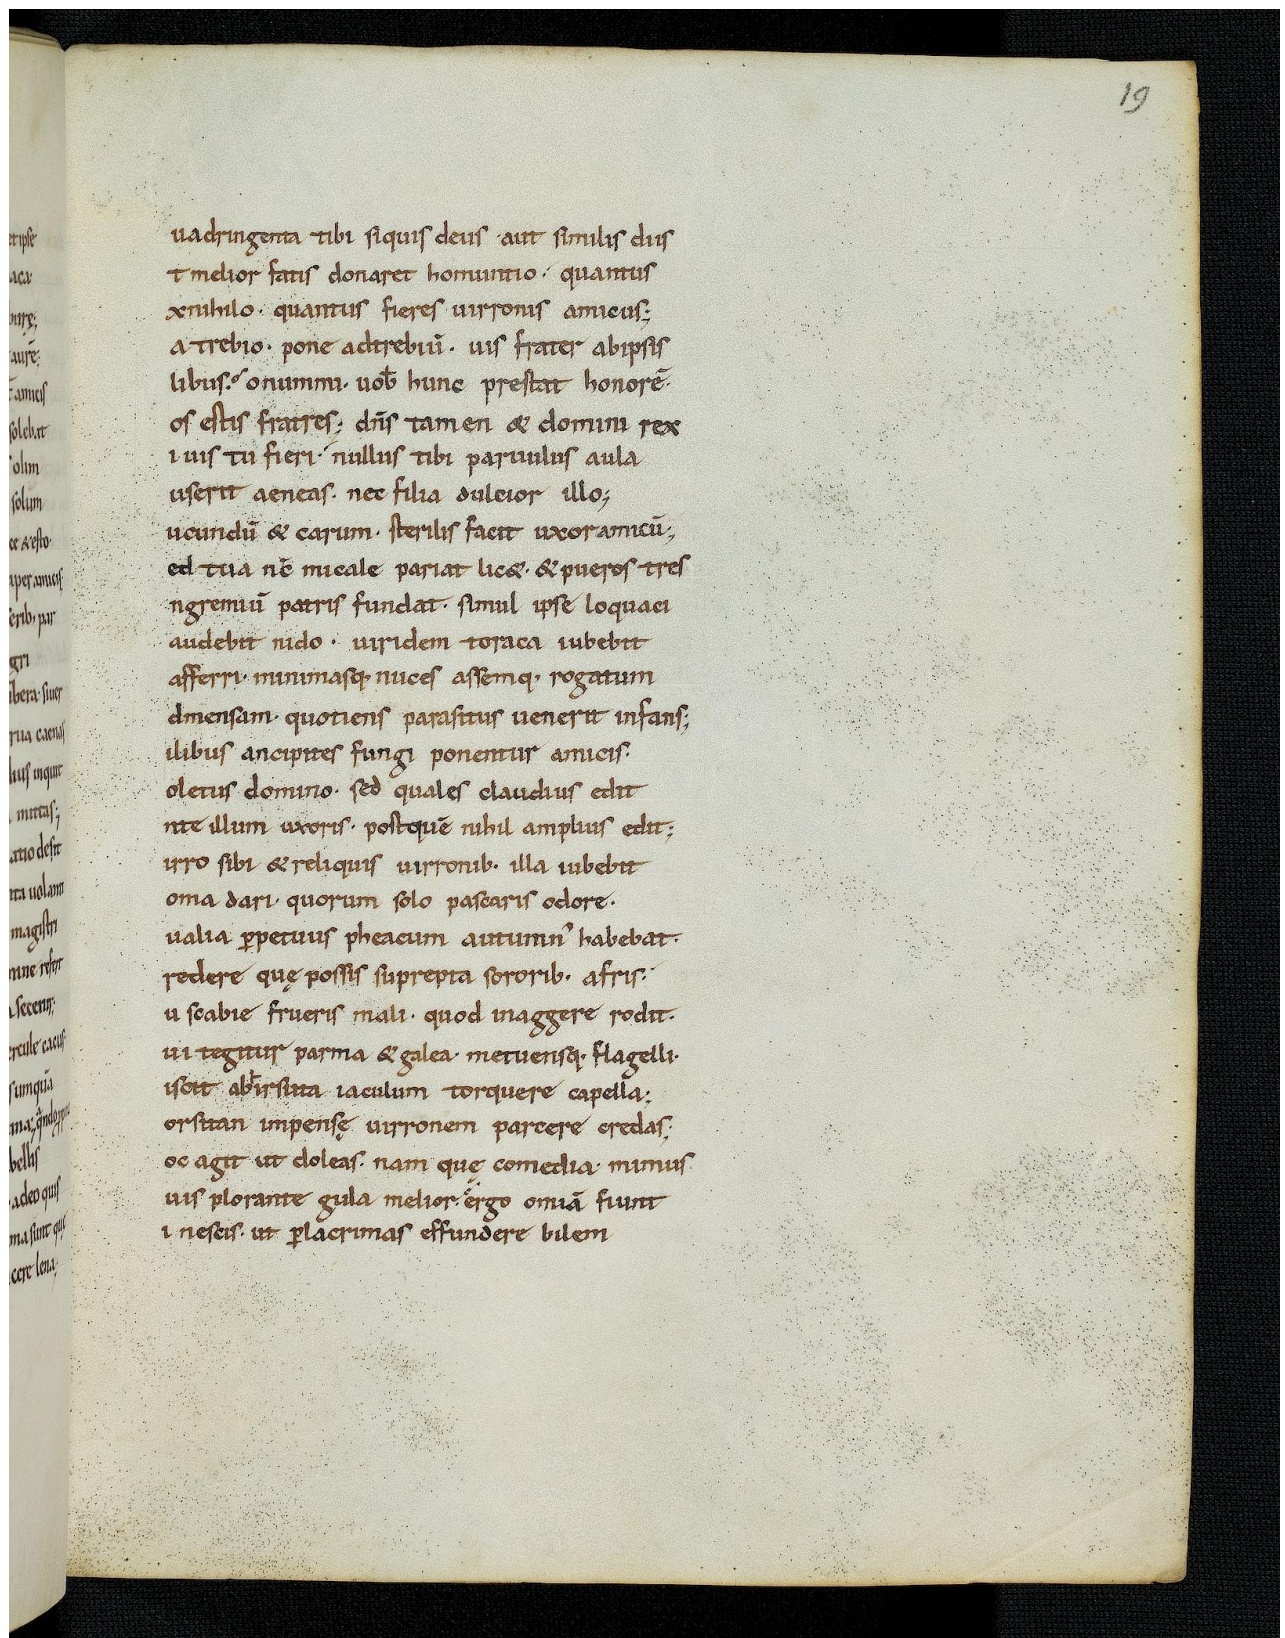 19
uadringenta tibi siquis deus aut similis diis
t melior fatis donaret homuntio · quantus
xnihilo · quantus fieres uirronis amicus;
a trebio · pone adtrebiū · uis frater abipsis
libus · o nummi · uob̄ hunc prestat honorē ·
os estis fratres; dn̄s tamen & domini rex
i uis tu fieri · nullus tibi paruulus aula
userit aeneas · nec filia dulcior illo;
ucundū & carum · sterilis facit uxor amicū;
ed tua nc̄ micale pariat lic& · & pueros tres
ngremiū patris fundat · simul ipse loquaci
audebit nido · uiridem toraca iubebit
afferri · minimasq· nuces assemq· rogatum
dmensam · quotiens parasitus uenerit infans;
ilibus ancipites fungi ponentur amicis ·
oletus domino · sed quales claudius edit
nte illum uxoris · postquē nihil amplius edit;
irro sibi & reliquis uirronib· illa iubebit
oma dari · quorum solo pascaris odore ·
ualia p̄petuus pheacum autumn' habebat ·
redere quę possis suprepta sororib· afris ·
u scabie frueris mali · quod inaggere rodit ·
ui tegitur parma & galea · metuensq· flagelli ·
iscit abhirsuta iaculum torquere capella;
orsitan impensę uirronem parcere credas;
oc agit ut doleas · nam quę comedia · mimus
uis plorante gula melior · ergo omiā fiunt
i nescis · ut p̄lacrimas effundere bilem